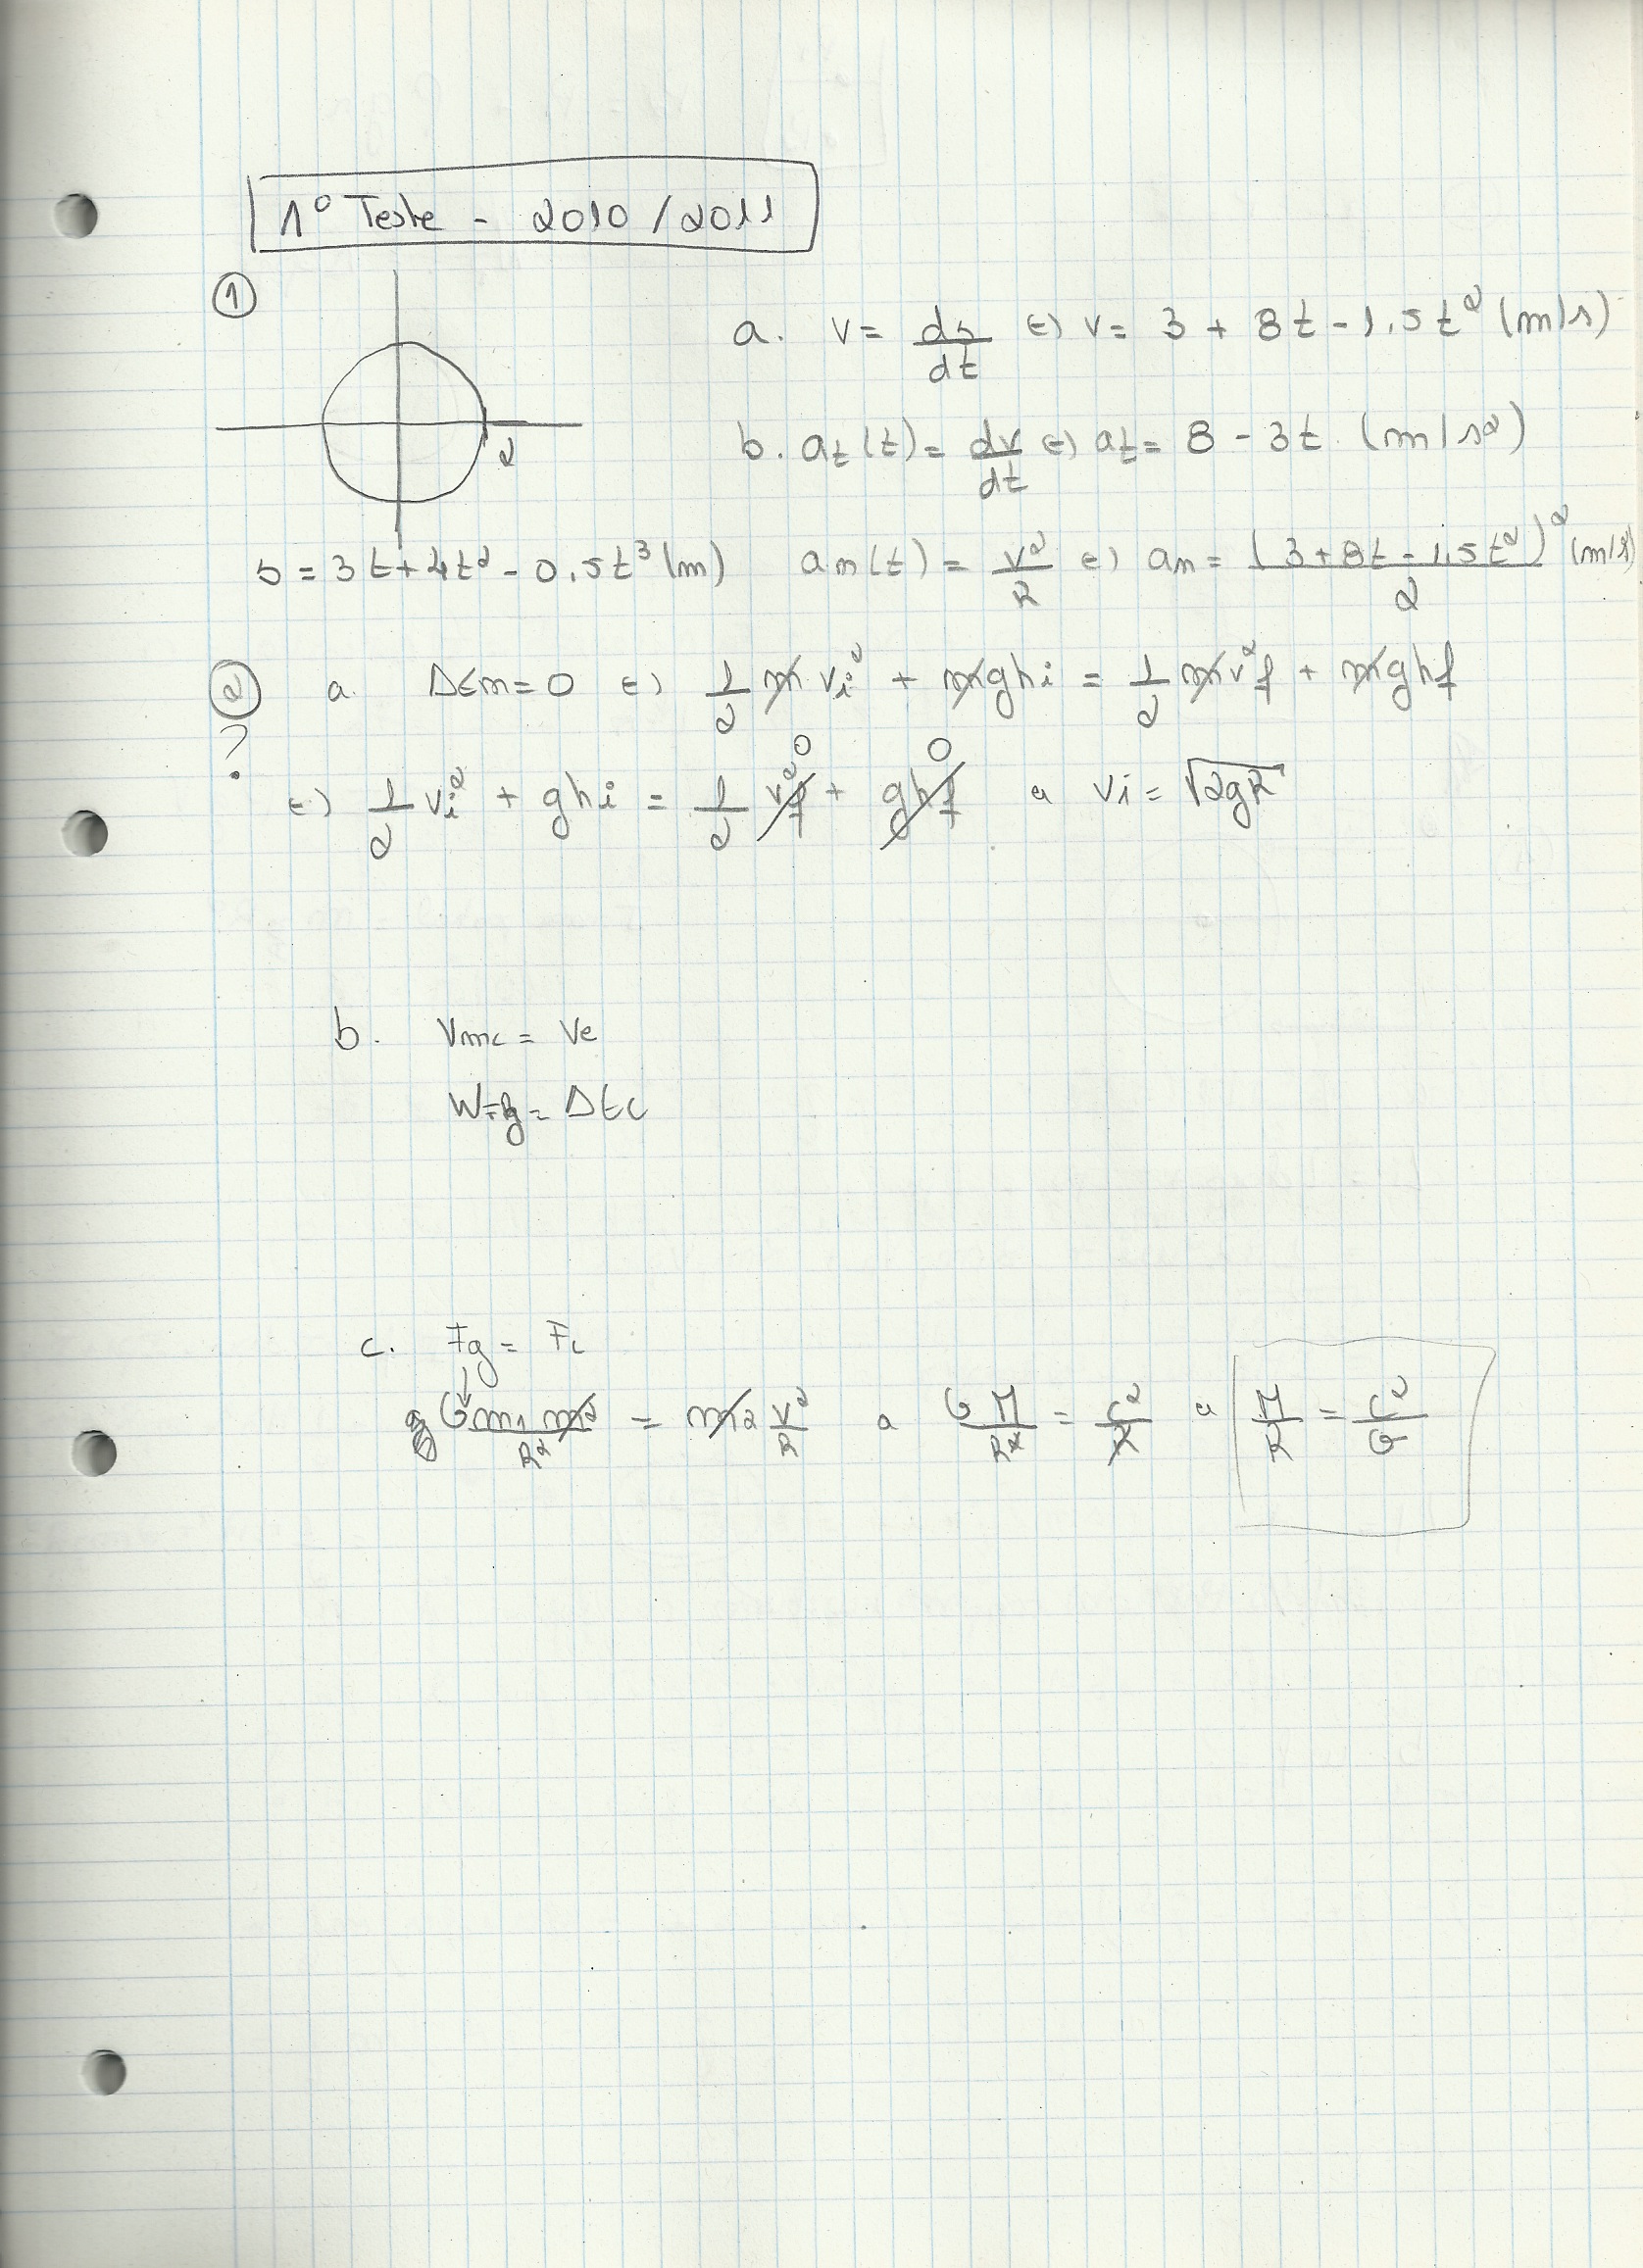 1º Teste - 2010/2011
①
a. v = ds/dt (=) v = 3 + 8t - 1.5t² (m/s)
2
b. at(t) = dv/dt (=) at = 8 - 3t (m/s²)
s = 3t + 4t² - 0.5t³ (m) an(t) = v²/R (=) an = (3 + 8t - 1.5t²)²/2 (m/s
② a. ΔEm = 0 (=) 1/2 m vi² + mghi = 1/2 m v²f + mghf
?
(=) 1/2 vi² + ghi = 1/2 v²f 0 + ghf 0 a vi = √2gR
b. Vmc = Ve
WFg = ΔEc
c. Fg = Fc
G m1 m2/R² = m2 v²/R a G M/R² = c²/R a M/R = c²/G